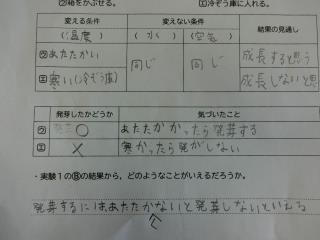 ㋒箱をかぶせる。 ㋓冷ぞう庫に入れる。
変える条件 変えない条件 結果の見通し
(温度) (水) (空気)
㋒ あたたかい 同じ 同じ 成長すると思う
㋓ 寒い(冷ぞう庫) 成長しないと思
発芽したかどうか 気づいたこと
㋒ ○ あたたかかったら発芽する
㋓ × 寒かったら発がしない
・実験1のⒷの結果から、どのようなことがいえるだろうか。
発芽するにはあたたかくないと発芽しないといえる